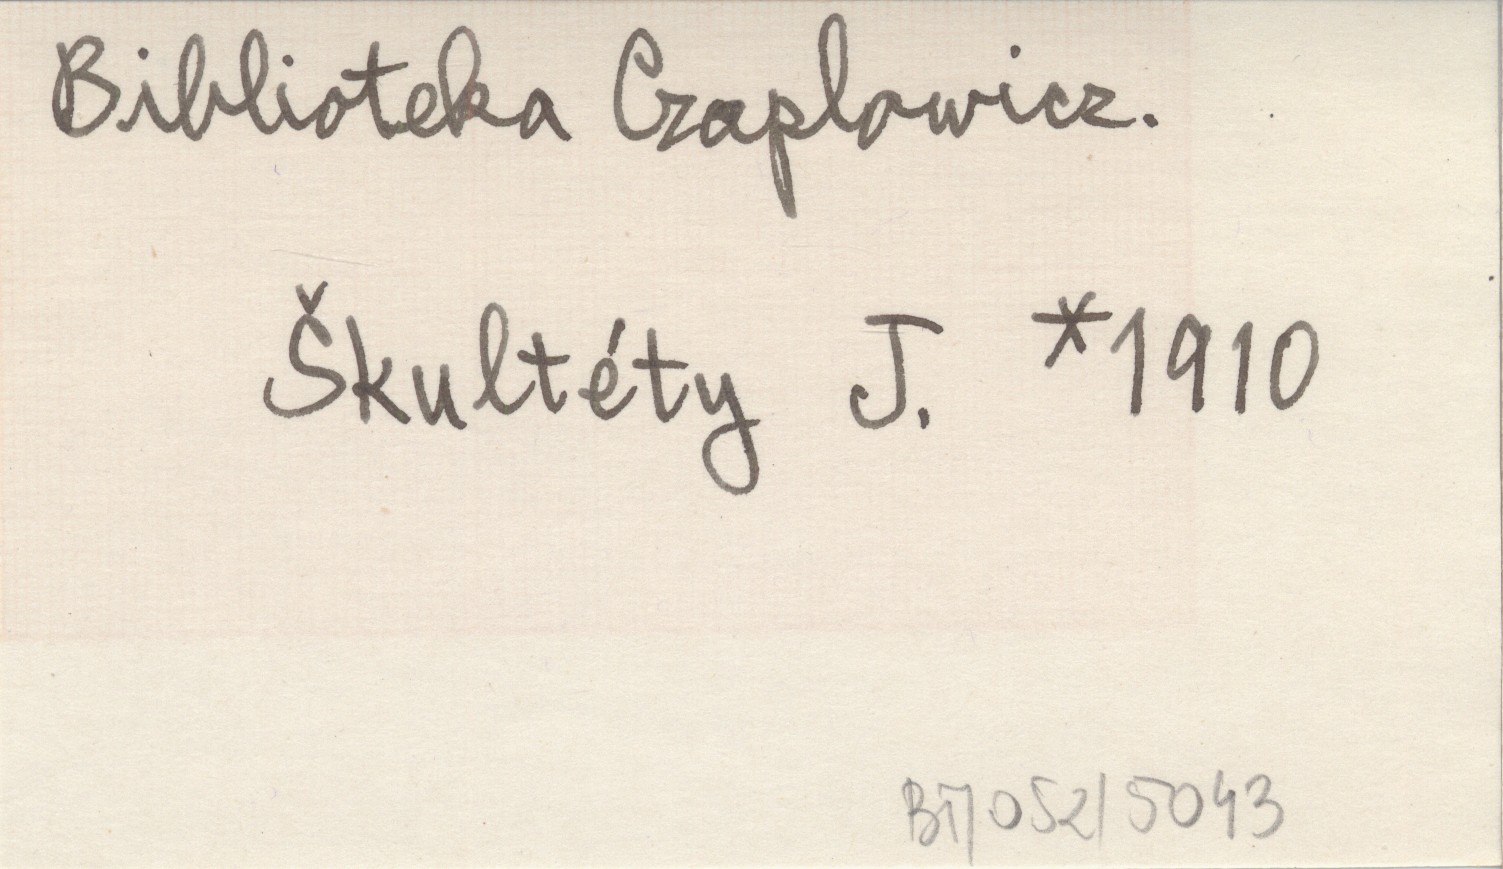 Biblioteka Czaplowicz.
Škultéty J. *1910
BI/052/5043